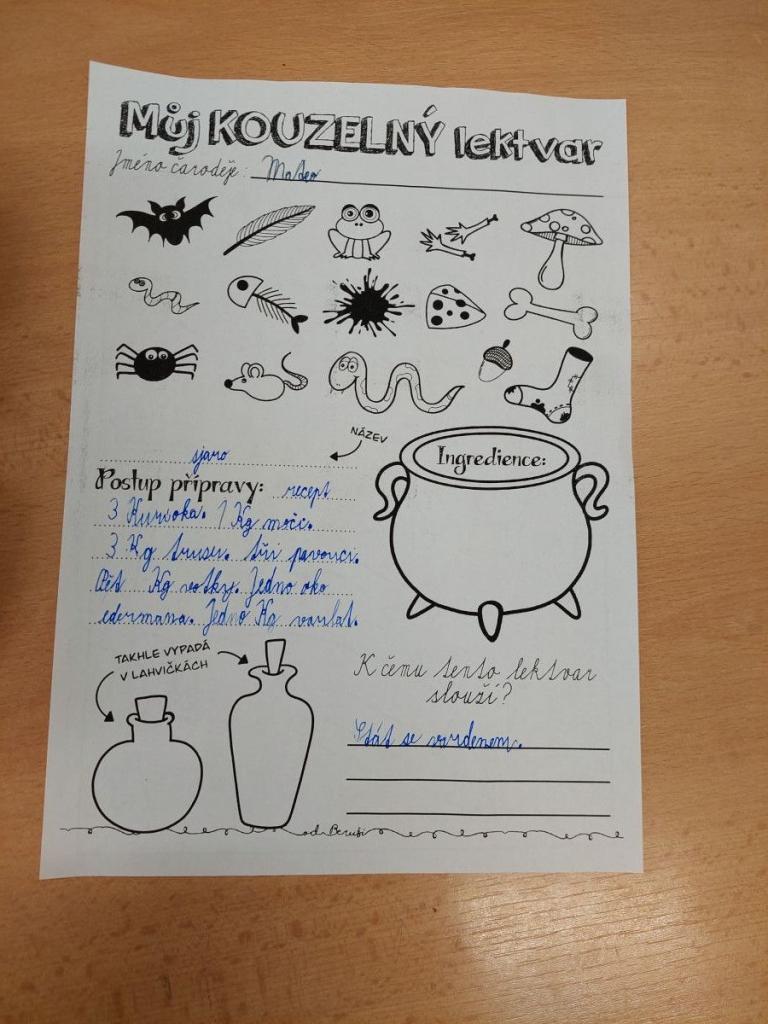 Můj KOUZELNÝ lektvar
Jméno čaroděje: Mateo
NÁZEV
sjaro
Postup přípravy: recept
3 Kg moči.
3 Kg trusu. tři pavouci.
Pět Kg votky. Jedno oko
edermana. Jedno Kg
Ingredience:
TAKHLE VYPADÁ
V LAHVIČKÁCH
K čemu tento lektvar
slouží?
Stát se
od Berušk